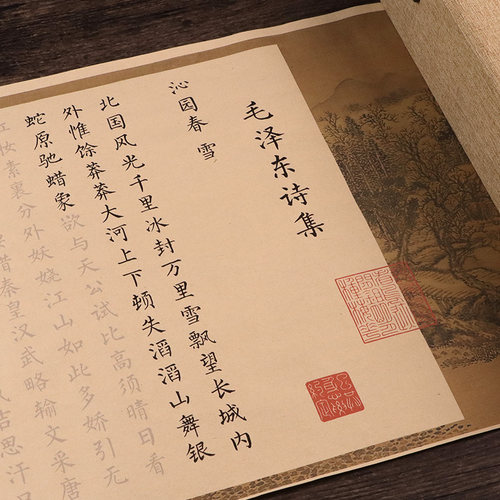 毛泽东诗集
沁园春 雪
北国风光千里冰封万里雪飘望长城内
外惟馀莽莽大河上下顿失滔滔山舞银
蛇原驰蜡象欲与天公试比高须晴日看
红妆素裹分外妖娆江山如此多娇引无
惜秦皇汉武略输文采唐
吉思汗只